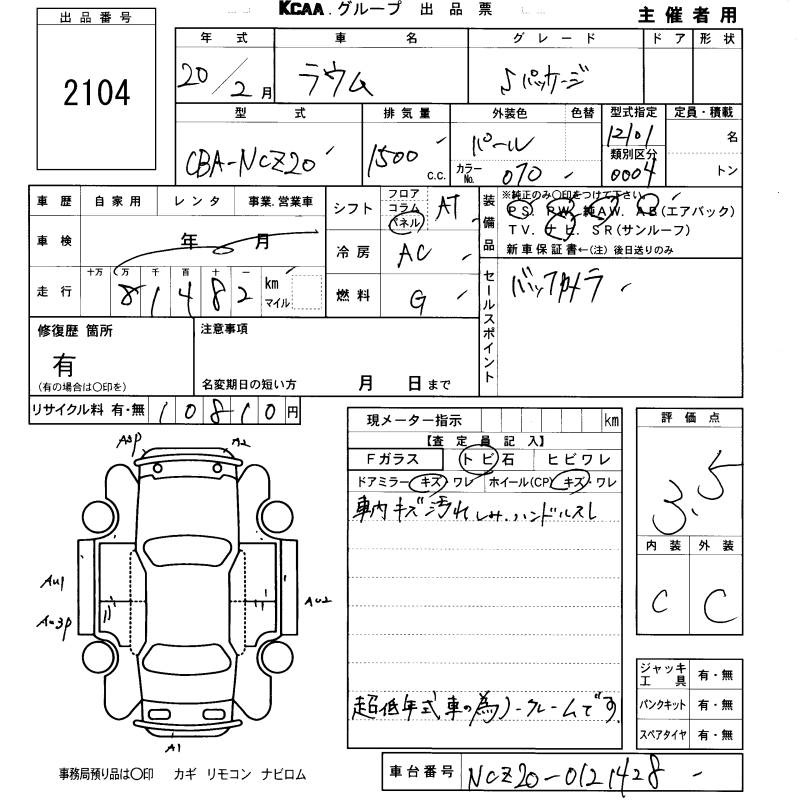 KCAA.グループ 出品票
主催者用
出品番号
2104
年式 車名 グレード ドア 形状
20/2月 ラウム Sパッケージ
型式 排気量 外装色 色替 型式指定 定員・積載
CBA-NCZ20 1500 c.c. パール 12101 名
カラーNo. 070 類別区分 0004 トン
車歴 自家用 レンタ 事業.営業車
シフト フロア コラム パネル AT
装備品 ※純正のみ〇印をつけて下さい
PS. PW. 純AW. AB(エアバック)
TV. ナビ. SR(サンルーフ)
新車保証書←(注) 後日送りのみ
車検 年 月
冷房 AC
走行 十万 万 千 百 十 一
81482 km マイル
燃料 G
セールスポイント バックカメラ
修復歴 箇所
有
(有の場合は〇印を)
注意事項
名変期日の短い方 月 日まで
リサイクル料 有・無 10810円
現メーター指示 km
【査定員記入】
Fガラス トビ石 ヒビワレ
ドアミラー キズ・ワレ ホイール(CP) キズ・ワレ
車内キズ汚れしみ.ハンドルスレ
超低年式車の為ノークレームです
評価点
3.5
内装 外装
C C
A3P A2
AU1
AU3P
AU2
A1
ジャッキ工具 有・無
パンクキット 有・無
スペアタイヤ 有・無
事務局預り品は〇印 カギ リモコン ナビロム
車台番号 NCZ20-0121428